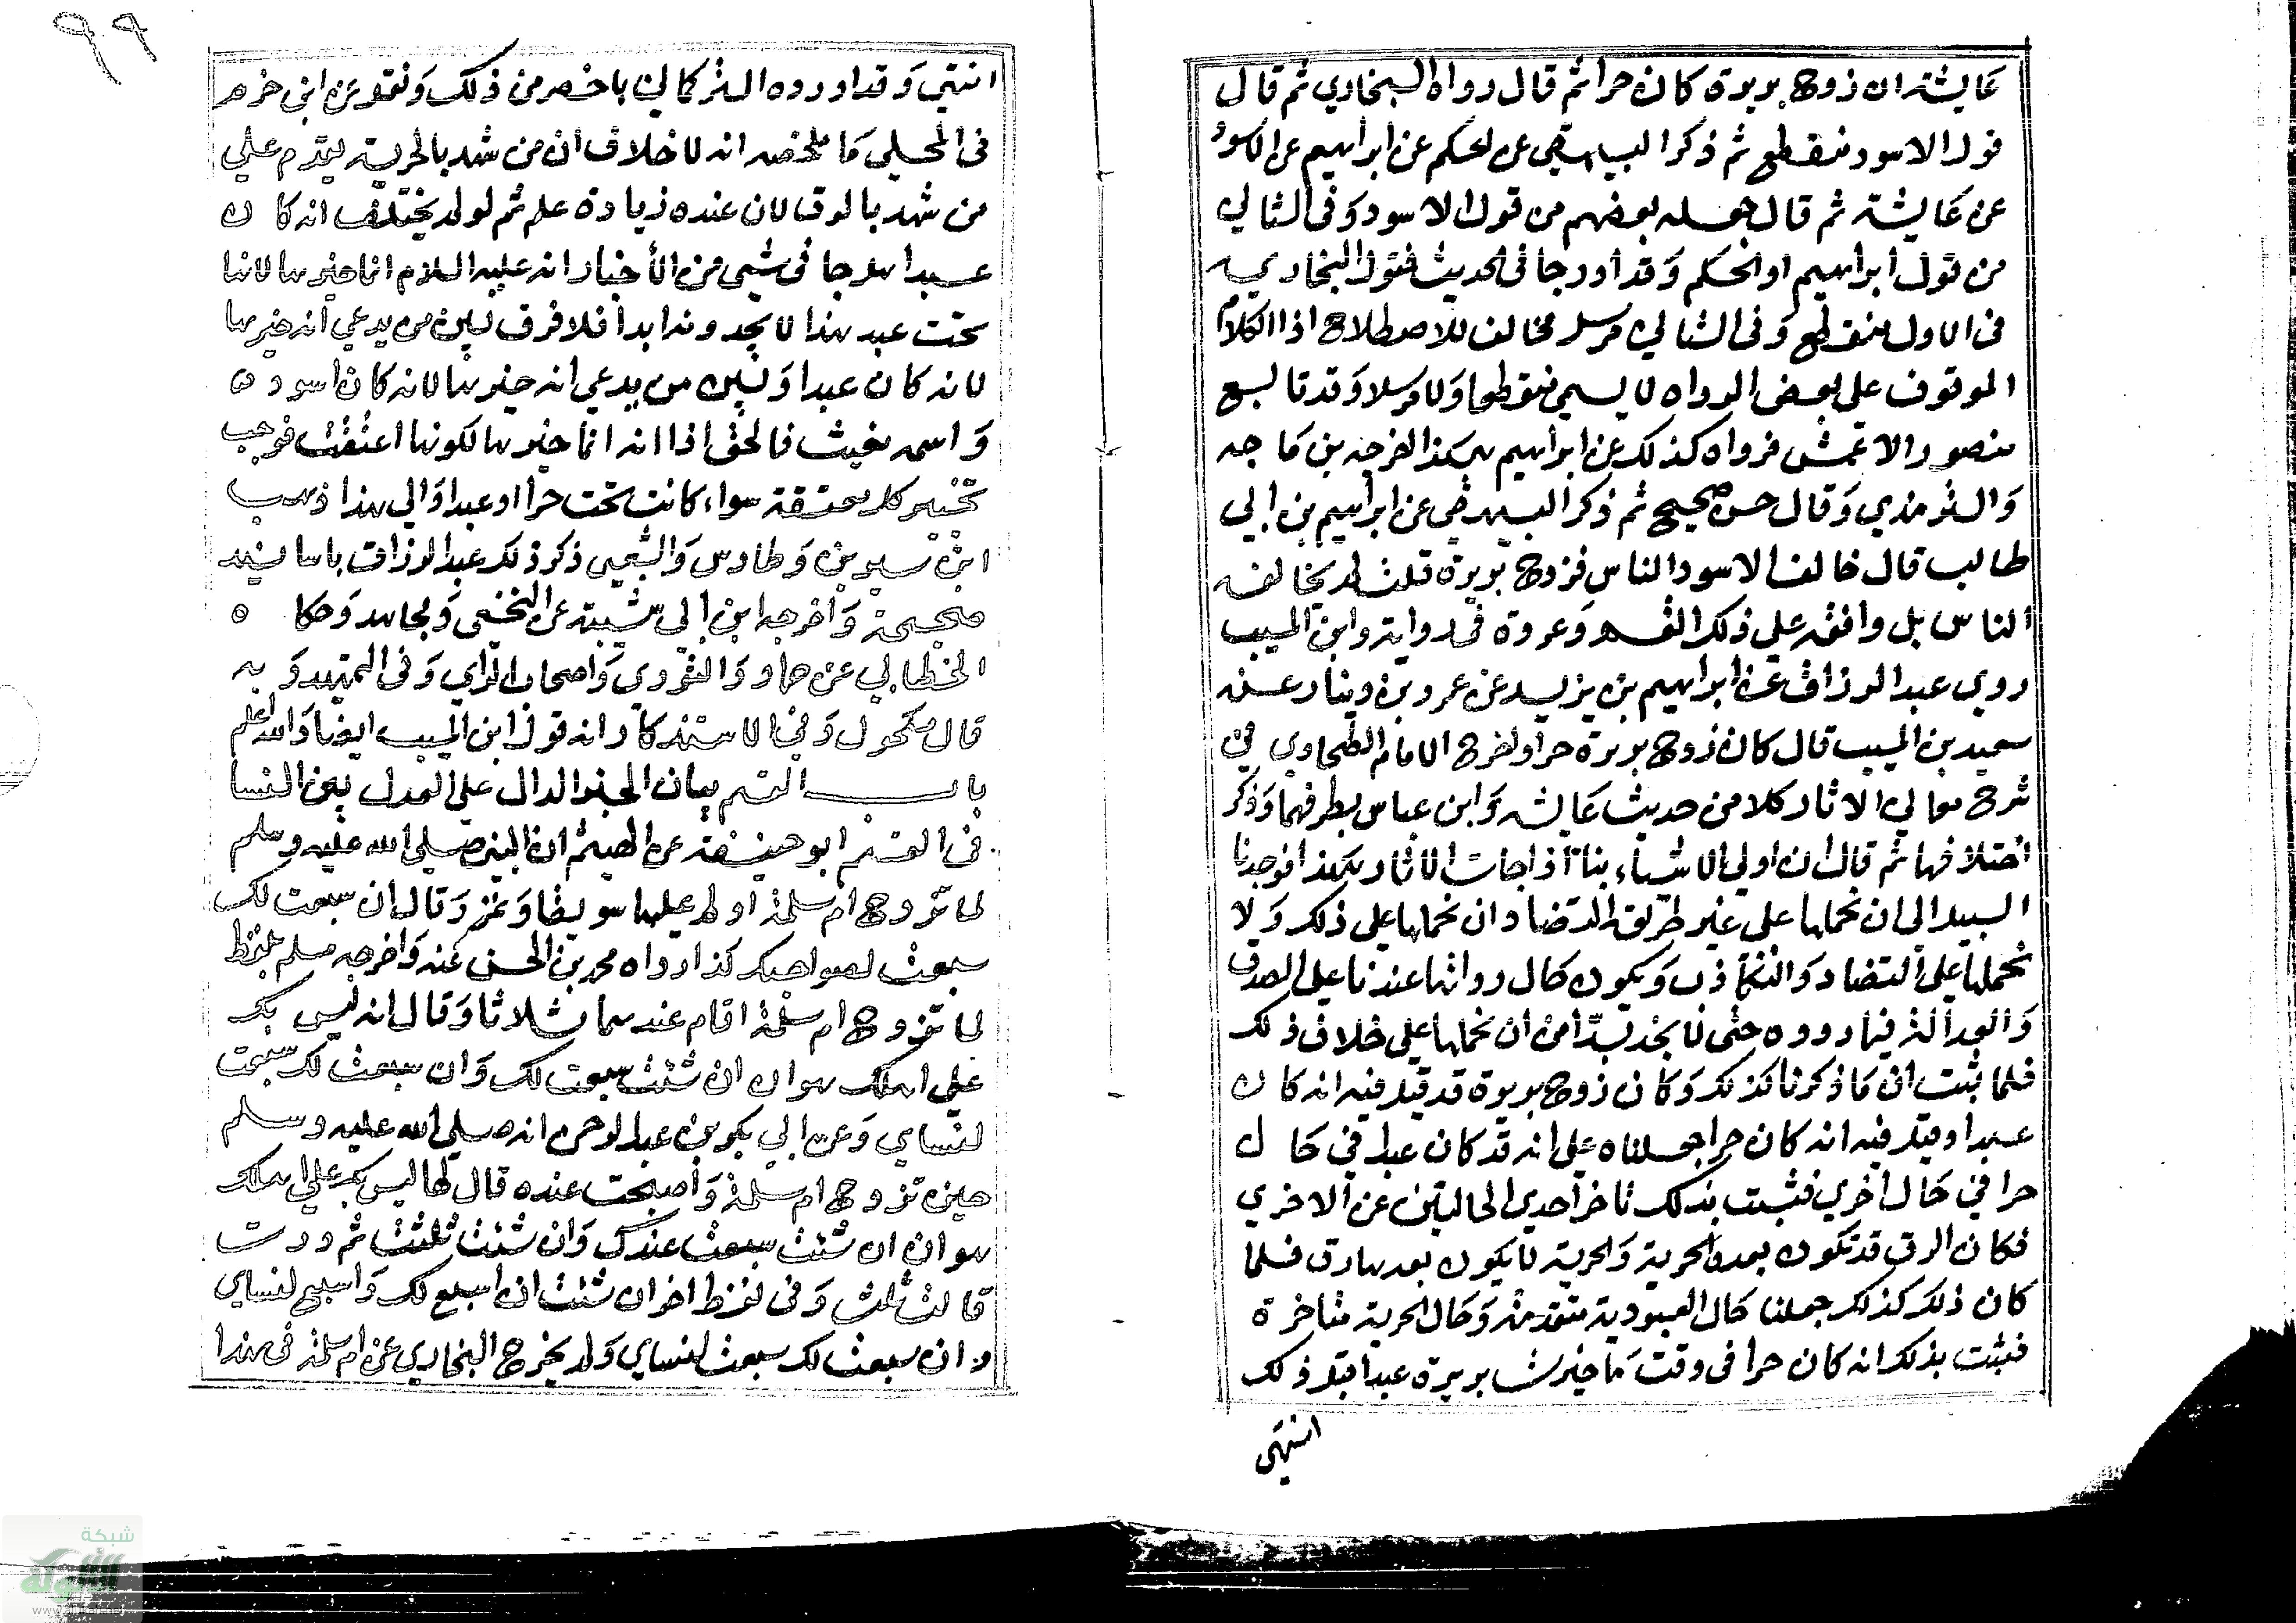 عايشة ان زوج بريرة كان حرا ثم قال رواه البخاري ثم قال
قول الاسود منقطع ثم ذكر البيهقي عن الحكم عن ابراهيم عن الاسود
عن عايشة ثم قال جعله بعضهم من قول الاسود وفي الثاني
من قول ابراهيم او الحكم وقد ادرجا في الحديث فقول البخاري
في الاول منقطع وفي الثاني مرسل مخالف للاصطلاح اذ الكلام
الموقوف على بعض الرواه لا يسمي منقطعا ولا مرسلا وقد تابع
منصور الاعمش فرواه كذلك عن ابراهيم هكذا اخرجه بن ماجه
والترمذي وقال حسن صحيح ثم ذكر البيهقي عن ابراهيم بن ابي
طالب قال خالف الاسود الناس في زوج بريرة قلت لم يخالف
الناس بل وافقه علي ذلك القسم وعروة في رواية وابن المسيب
روي عبد الرزاق عن ابراهيم بن يزيد عن عمرو بن دينار عن
سعيد بن المسيب قال كان زوج بريرة حرا واخرج الامام الطحاوي في
شرح معاني الاثار كلا من حديث عايشه وابن عباس بطرقهما وذكر
اختلافها ثم قال ان اولي الاشياء بنا اذا جات الاثار هكذا فوجدنا
السبيل الى ان نحملها على غير طريق التضاد ان نحملها على ذلك ولا
نحملها على التضاد والتكاذب ويكون حال رواتها عندنا على الصدق
والعدالة فيما رووه حتى لا نجد بدا من ان نحملها على خلاف ذلك
فلما ثبت ان ما ذكرنا كذلك وكان زوج بريرة قد قيل فيه انه كان
عبدا وقيل فيه انه كان حرا جعلناه على انه قد كان عبدا في حال
حرا في حال اخري فثبت بذلك تاخر احدي الحالتين عن الاخري
فكان الرق قد تكون بعده الحرية والحرية لا يكون بعدها رق فلما
كان ذلك كذلك جعلنا حال العبودية متقدمة وحال الحرية متاخرة
فثبت بذلك انه كان حرا في وقت ما خيرت بريرة عبدا قبل ذلك
انتهى
٩٩
انتهي وقد اورده التركماني باخصر من ذلك ونقل عن ابن حزم
في المحلي ما ملخصه انه لا خلاف ان من شهد بالحرية يقدم علي
من شهد بالرق لان عنده زيادة علم ثم لو لم يختلف انه كان
عبدا هل جا في شي من الأخبار انه عليه السلام انما خيرها لانها
تحت عبد هذا لا يجدونه ابدا فلا فرق بين من يدعي انه خيرها
لانه كان عبدا وبين من يدعي انه خيرها لانه كان اسود
واسمه مغيث فالحق اذا انه انما خيرها لكونها اعتقت فوجب
تخيير كل معتقة سواء كانت تحت حرا او عبدا والي هذا ذهب
ابن سيرين وطاوس والشعبي ذكر ذلك عبد الرزاق باسانيد
صحيحة واخرجه ابن ابي شيبة عن النخعي ومجاهد وحكاه
الخطابي عن حماد والثوري واصحاب الراي وفي التمهيد وبه
قال مكحول وفي الاستذكار انه قول ابن المسيب ايضا والله اعلم
باب القسم بيان الخبر الدال علي العدل بين النسا
في القسم ابو حنيفة عن الهيثم ان النبي صلي الله عليه وسلم
لما تزوج ام سلمة اولم عليها سويقا وتمر وقال ان سبعت لك
سبعت لصواحبك كذا رواه محمد بن الحسن عنه واخرجه مسلم بلفظ
لما تزوج ام سلمة اقام عندها ثلاثا وقال انه ليس بك
علي اهلك هوان ان شئت سبعت لك وان سبعت لك سبعت
لنساي وعن ابي بكر بن عبد الرحمن انه صلي الله عليه وسلم
حين تزوج ام سلمة واصبحت عنده قال لها ليس بك علي اهلك
هوان ان شئت سبعت عندك وان شئت ثلثت ثم درت
قالت ثلث وفي لفظ اخر ان شئت ان اسبع لك واسبع لنساي
وان سبعت لك سبعت لنساي ولم يخرج البخاري عن ام سلمة في هذا
شبكة
الألوكة